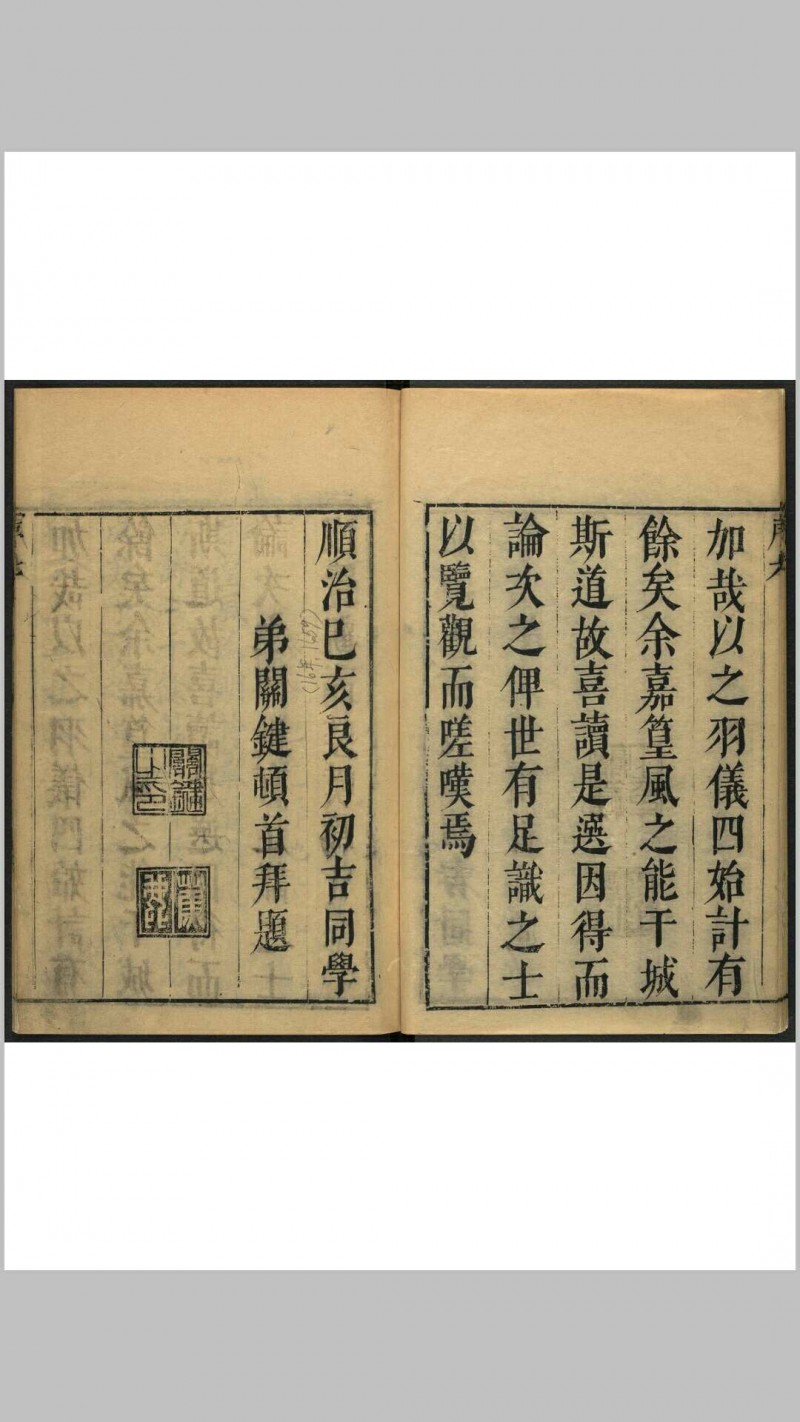 加哉以之羽儀四始計有
餘矣余嘉篁風之能干城
斯道故喜讀是選因得而
論次之俾世有足識之士
以覽觀而嗟嘆焉
順治巳亥良月初吉同學
弟關鍵頓首拜題
關鍵之印